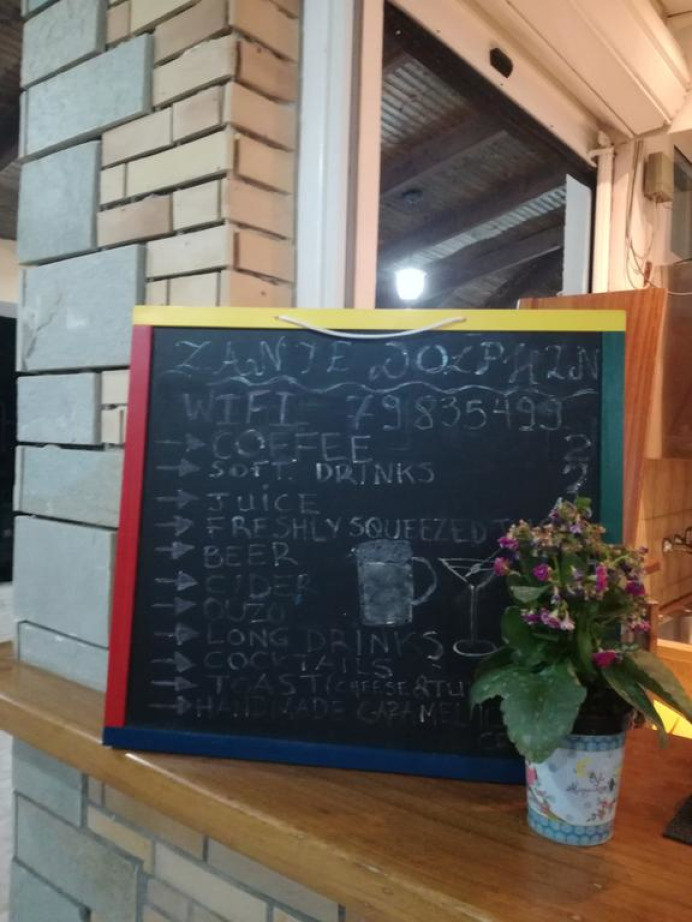 ZANTE DOLPHIN
WIFI 79835499
COFFEE 2
SOFT. DRINKS 2
JUICE
FRESHLY SQUEEZED
BEER
CIDER
OUZO
LONG DRINKS
COCKTAILS
TOAST (CHEESE &
HANDMADE CARAMEL